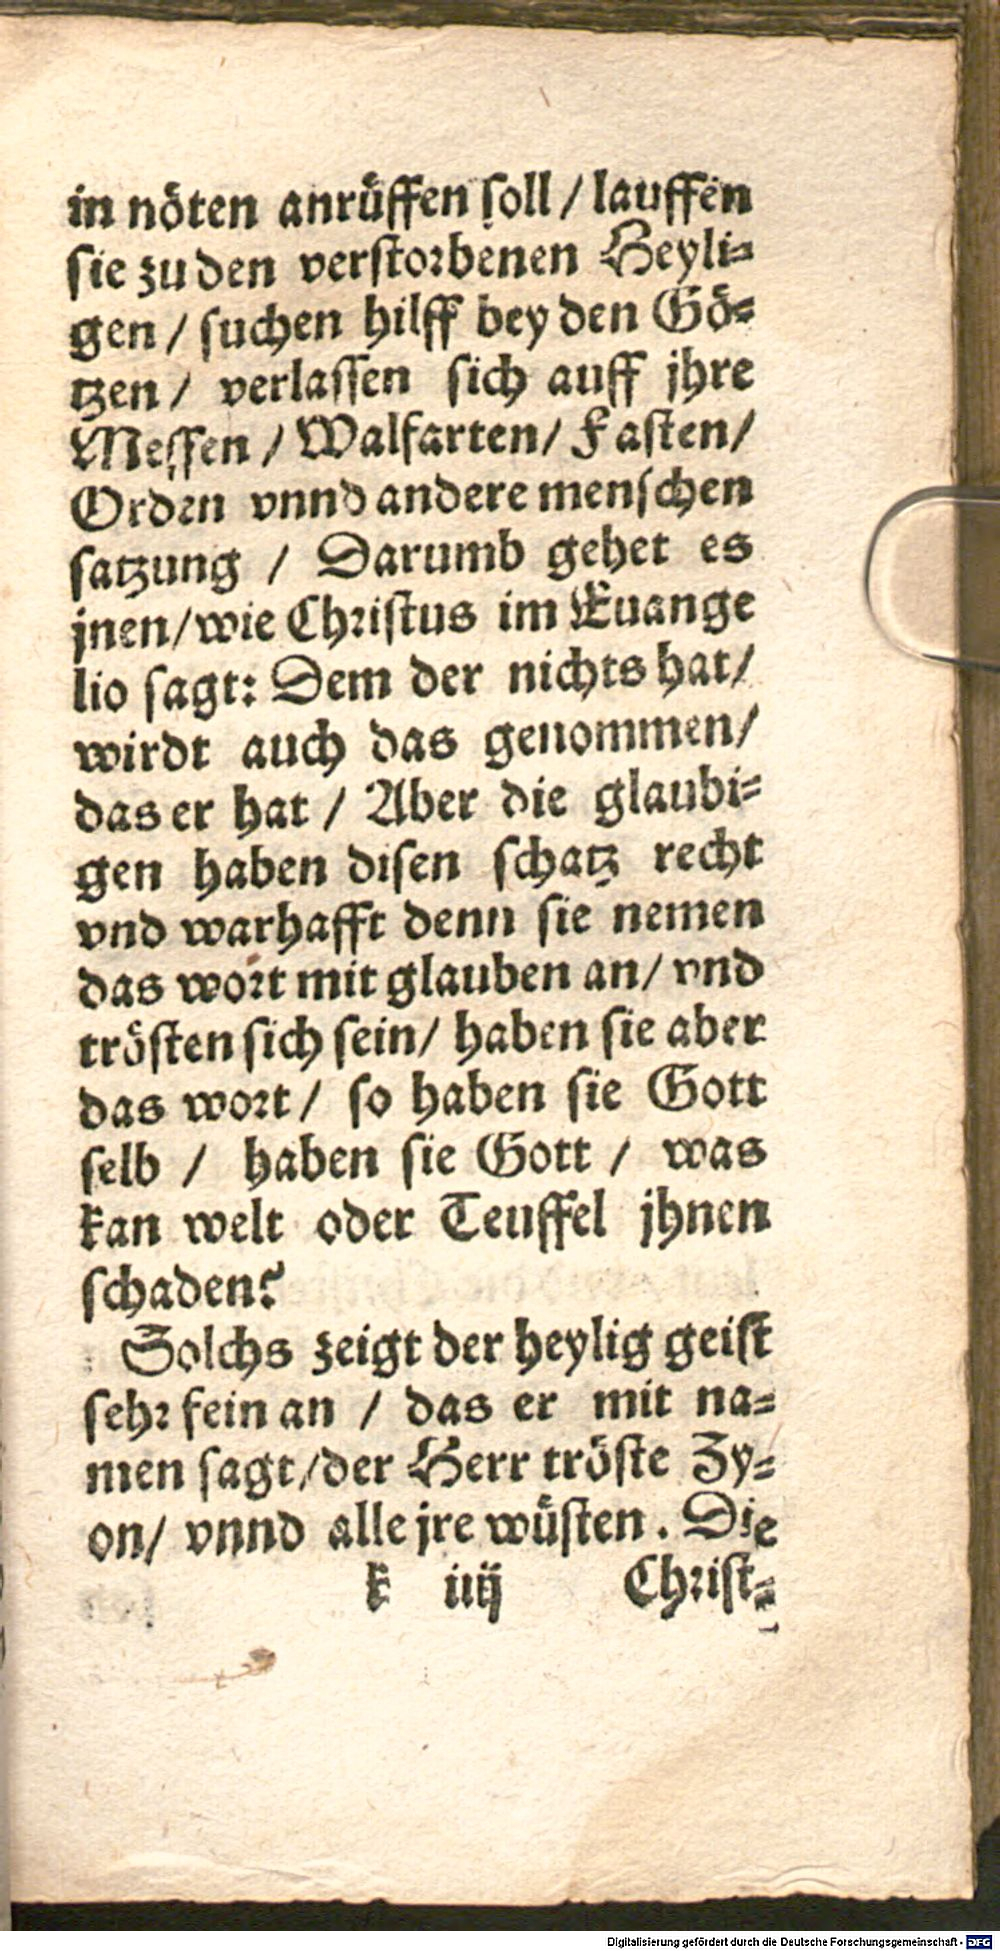 in nöten anrüffen soll / lauffen
sie zu den verstorbenen Heyli-
gen / suchen hilff bey den Gö-
tzen / verlassen sich auff jhre
Messen / Walfarten / Fasten /
Orden vnnd andere menschen
satzung / Darumb gehet es
jnen / wie Christus im Euange
lio sagt: Dem der nichts hat /
wirdt auch das genommen /
das er hat / Aber die glaubi-
gen haben disen schatz recht
vnd warhafft denn sie nemen
das wort mit glauben an / vnd
trösten sich sein / haben sie aber
das wort / so haben sie Gott
selb / haben sie Gott / was
kan welt oder Teuffel jhnen
schaden?
Solchs zeigt der heylig geist
sehr fein an / das er mit na-
men sagt / der Herr tröste Zy-
on / vnnd alle jre wüsten. Die
k iiij Christ-
Digitalisierung gefördert durch die Deutsche Forschungsgemeinschaft - DFG